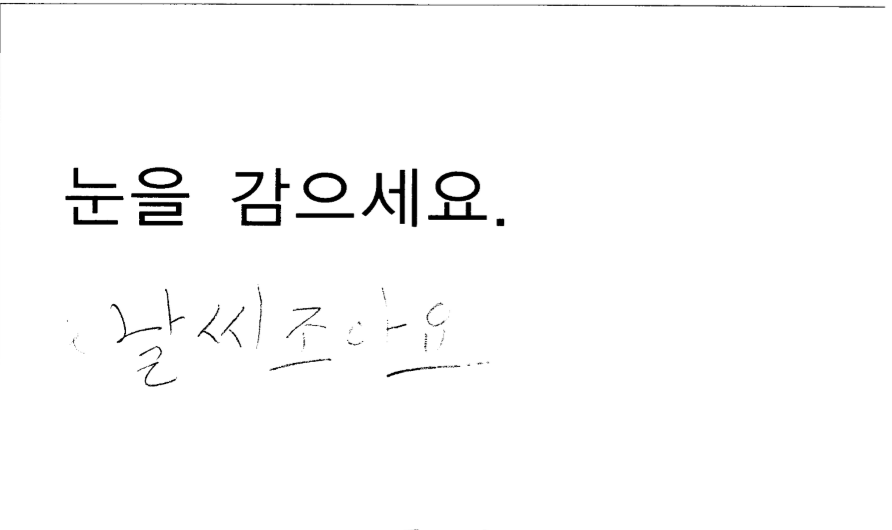 눈을 감으세요.
날씨조아요